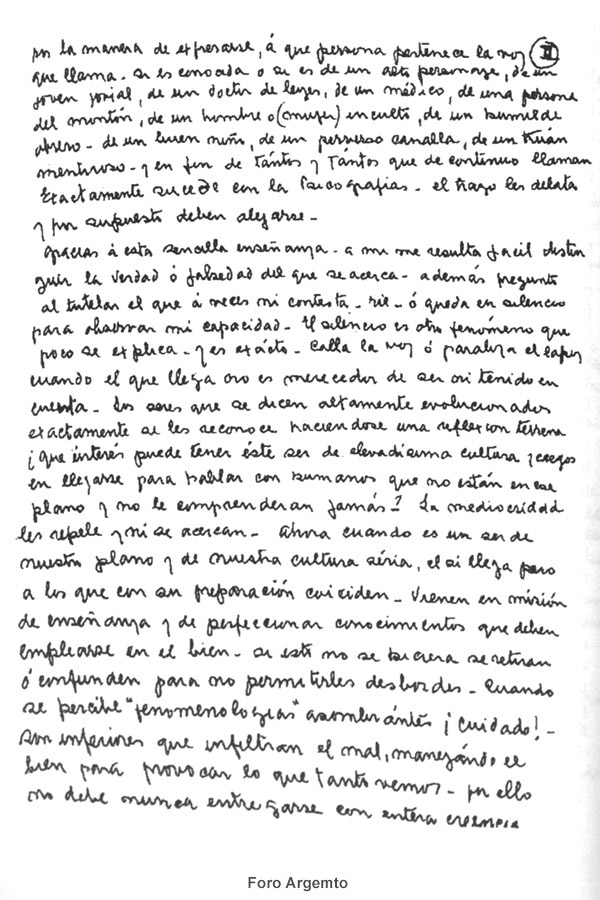 por la manera de expresarse, á que persona pertenece la voz II
que llama. si es conocida o si es de un alto personaje, de un
joven jovial, de un doctor de leyes, de un médico, de una persona
del montón, de un hombre o (mujer) inculto, de un humilde
obrero - de un buen niño, de un perverso canalla, de un truán
mentiroso - y en fin de tántos y tántos que de continuo llaman
Exactamente sucede con la Psicografias - el trazo les delata
y por supuesto deben alejarse -
gracias á esta sencilla enseñanza - a mi me resulta facil distin
guir la verdad ó falsedad del que se acerca - además pregunto
al tutelar el que á veces mi contesta - rie - ó queda en silencio
para observar mi capacidad - El silencio es otro fenómeno que
poco se explica - y es exácto - Calla la voz ó paraliza el lapiz
cuando el que llega no es merecedor de ser ni tenido en
cuenta - Los seres que se dicen altamente evolucionados
exactamente se les reconoce haciendose una reflexion terrena
¿Que interés puede tener éste ser de elevadisima cultura y
en llegarse para hablar con humanos que no están en ese
plano y no le comprenderan jamás? La mediocridad
les repele y ni se acercan - Ahora cuando es un ser de
nuestro plano y de nuestra cultura séria, el si llega pero
a los que con su preparación coiciden - Vienen en misión
de enseñanza y de perfeccionar conocimientos que deben
emplearse en el bien - si esto no se hiciera se retiran
ó confunden para no permitirles desbordes - Cuando
se percibe "fenomenologias" asombrántes ¡Cuidado! -
son inferiores que infiltran el mal, manejándo el
bien para provocar lo que tanto vemos - por ello
no debe nunca entregarse con entera creencia
Foro Argemto